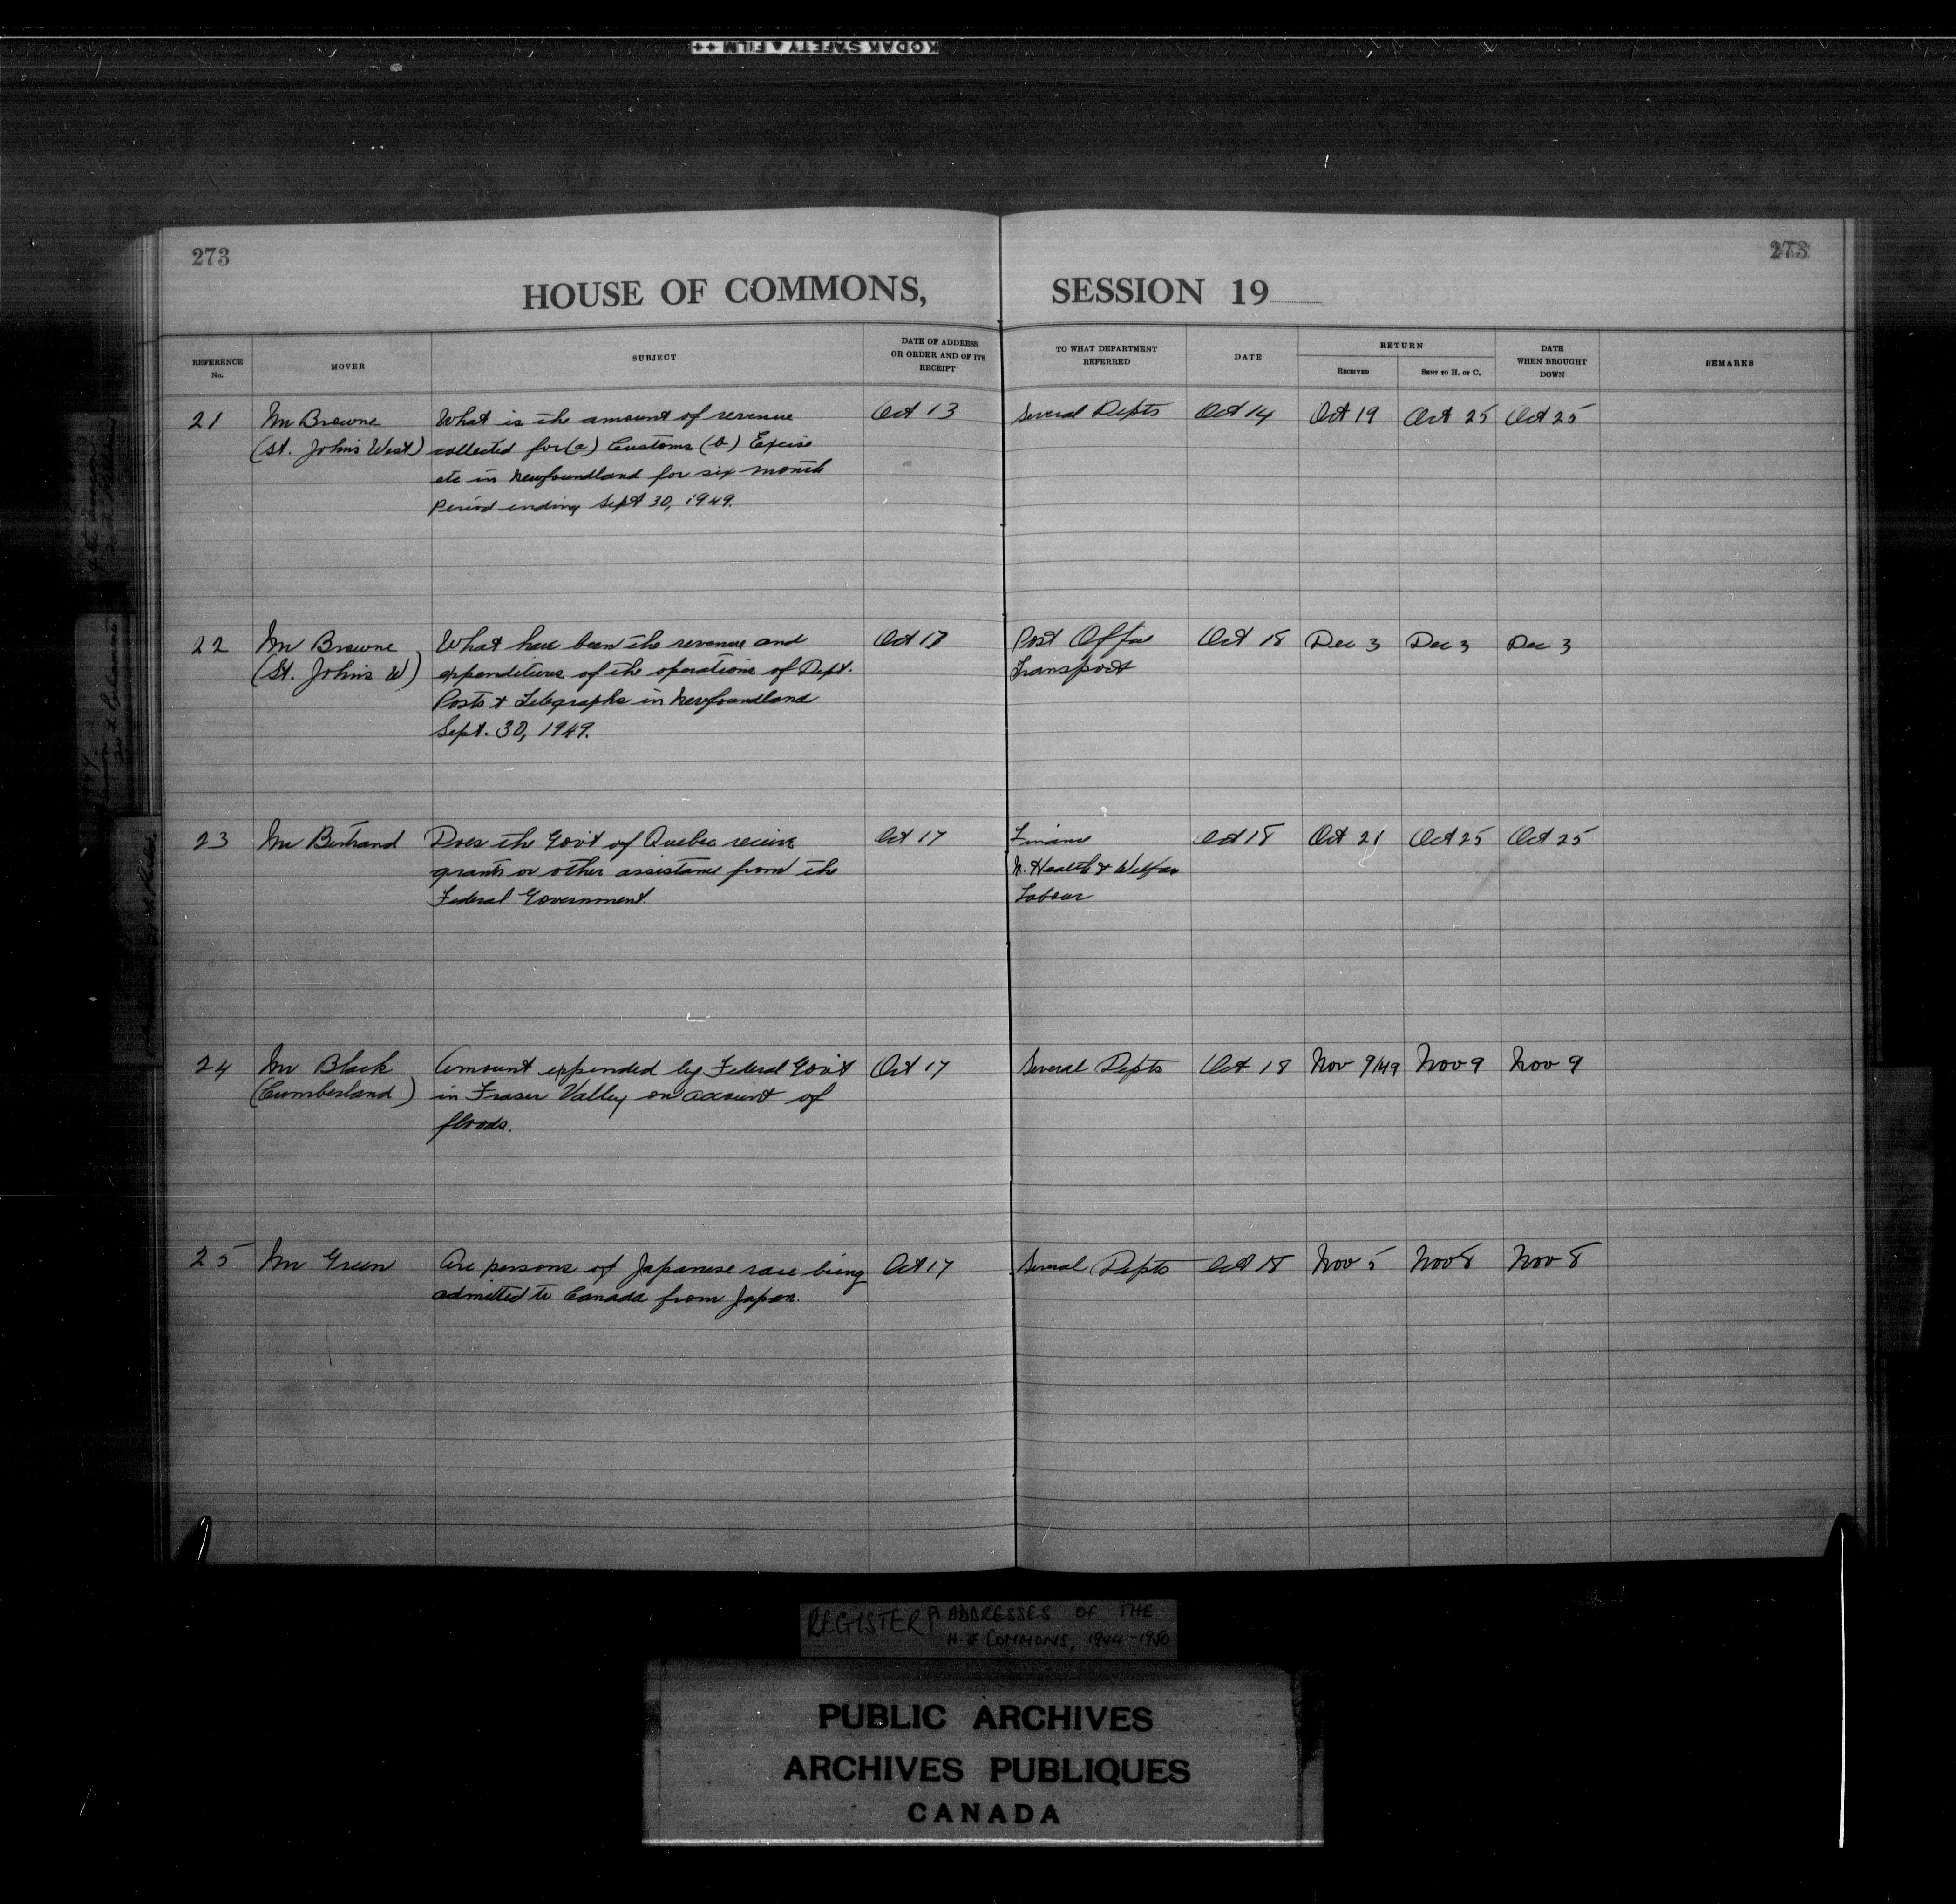 KODAK SAFETY FILM ++
273
273
HOUSE OF COMMONS, SESSION 19
REFERENCE No.
MOVER
SUBJECT
DATE OF ADDRESS OR ORDER AND OF ITS RECEIPT
TO WHAT DEPARTMENT REFERRED
DATE
RETURN
RECEIVED
SENT TO H. OF C.
DATE WHEN BROUGHT DOWN
REMARKS
21 Mr Browne What is the amount of revenue Oct 13 Several Depts Oct 14 Oct 19 Oct 25 Oct 25
(St. John's West) collected for (a) Customs (b) Excise
etc in Newfoundland for six month
Period ending Sept 30, 1949.
22 Mr Browne What have been the revenue and Oct 17 Post Office Oct 18 Dec 3 Dec 3 Dec 3
(St. John's W) expenditures of the operations of Dept. Transport
Posts & Telegraphs in Newfoundland
Sept. 30, 1949.
23 Mr Bertrand Does the Gov't of Quebec receive Oct 17 Finance Oct 18 Oct 21 Oct 25 Oct 25
grants or other assistance from the N. Health & Welfare
Federal Government. Labour
24 Mr Black Amount expended by Federal Gov't Oct 17 Several Depts Oct 18 Nov 9/49 Nov 9 Nov 9
(Cumberland) in Fraser Valley on account of
floods.
25 Mr Green Are persons of Japanese race being Oct 17 Several Depts Oct 18 Nov 5 Nov 8 Nov 8
admitted to Canada from Japan.
REGISTER OF ADDRESSES OF THE
H. OF COMMONS, 1944-1950
PUBLIC ARCHIVES
ARCHIVES PUBLIQUES
CANADA